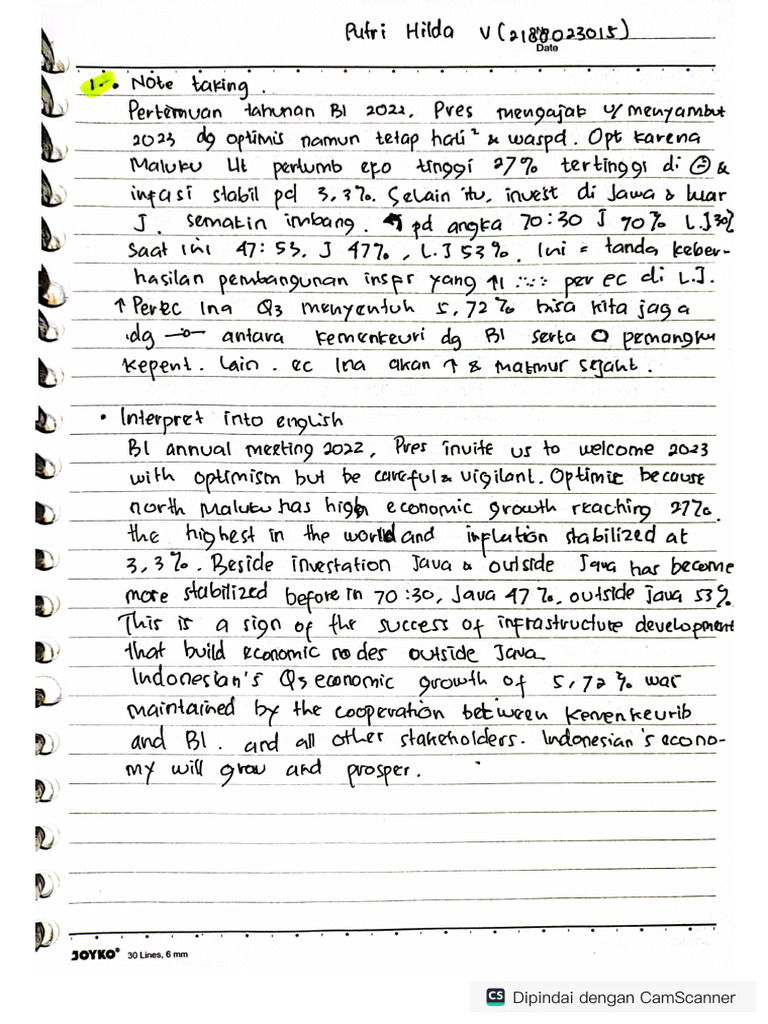 Putri Hilda V (2188023015)
Date
1. • Note taking.
Pertemuan tahunan BI 2022, Pres mengajak u/ menyambut
2023 dg optimis namun tetap hati² & waspd. Opt karena
Maluku Ut pertumb eko tinggi 27% tertinggi di &
infasi stabil pd 3,3%. Selain itu, invest di Jawa & luar
J. semakin imbang. pd angka 70:30 J 70% L.J 30%
Saat ini 47:53. J 47%, L.J 53%. Ini = tanda keber-
hasilan pembangunan inspr yang per ec di L.J.
↑ Perec Ina Q3 menyentuh 5,72% bisa kita jaga
dg antara kemenkeuri dg BI serta O pemangku
kepent. lain. ec Ina akan ↑ & makmur sejaht.
• Interpret into english
BI annual meeting 2022, Pres invite us to welcome 2023
with optimism but be careful & vigilant. Optimic because
north Maluku has high economic growth reaching 27%.
the highest in the world and inflation stabilized at
3,3%. Beside investation Java & outside Java has become
more stabilized before in 70:30, Java 47%, outside java 53%
This is a sign of the success of infrastructure development
that build economic nodes outside Java
Indonesian's Q3 economic growth of 5,72% was
maintained by the cooperation between Kemenkeurib
and BI. and all other stakeholders. Indonesian's econo-
my will grow and prosper.
JOYKO® 30 Lines, 6 mm
CS Dipindai dengan CamScanner